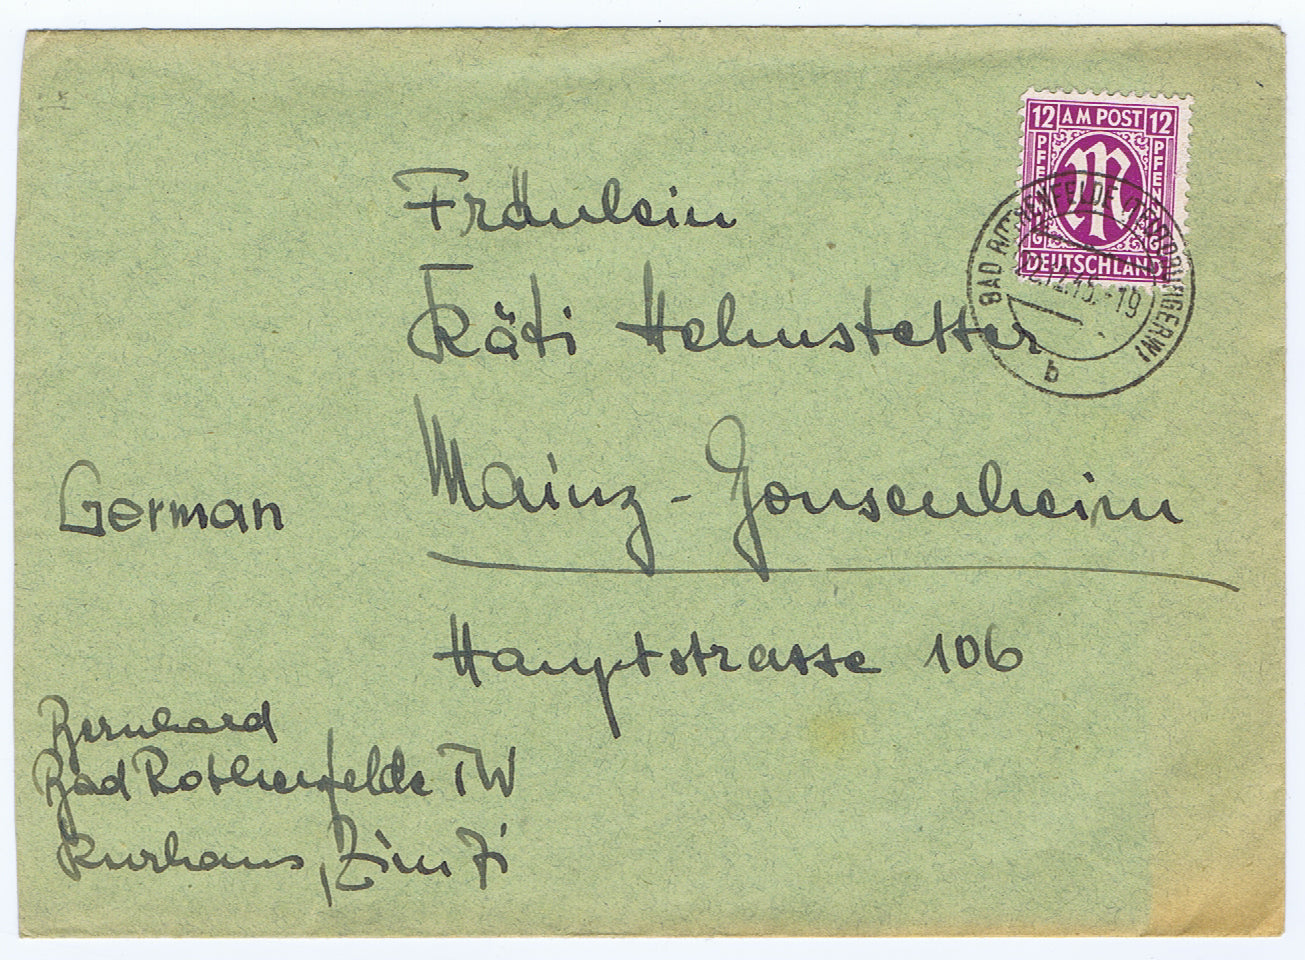 12 AM POST 12
PFENNIG PFENNIG
M
DEUTSCHLAND
BAD ROTHENFELDE (TEUTOBURGERW)
12.45.-19
b
Fräulein
Käti Helmstetter
Mainz-Gonsenheim
Hauptstrasse 106
German
Bernhard
Bad Rothenfelde TW
Kurhaus,